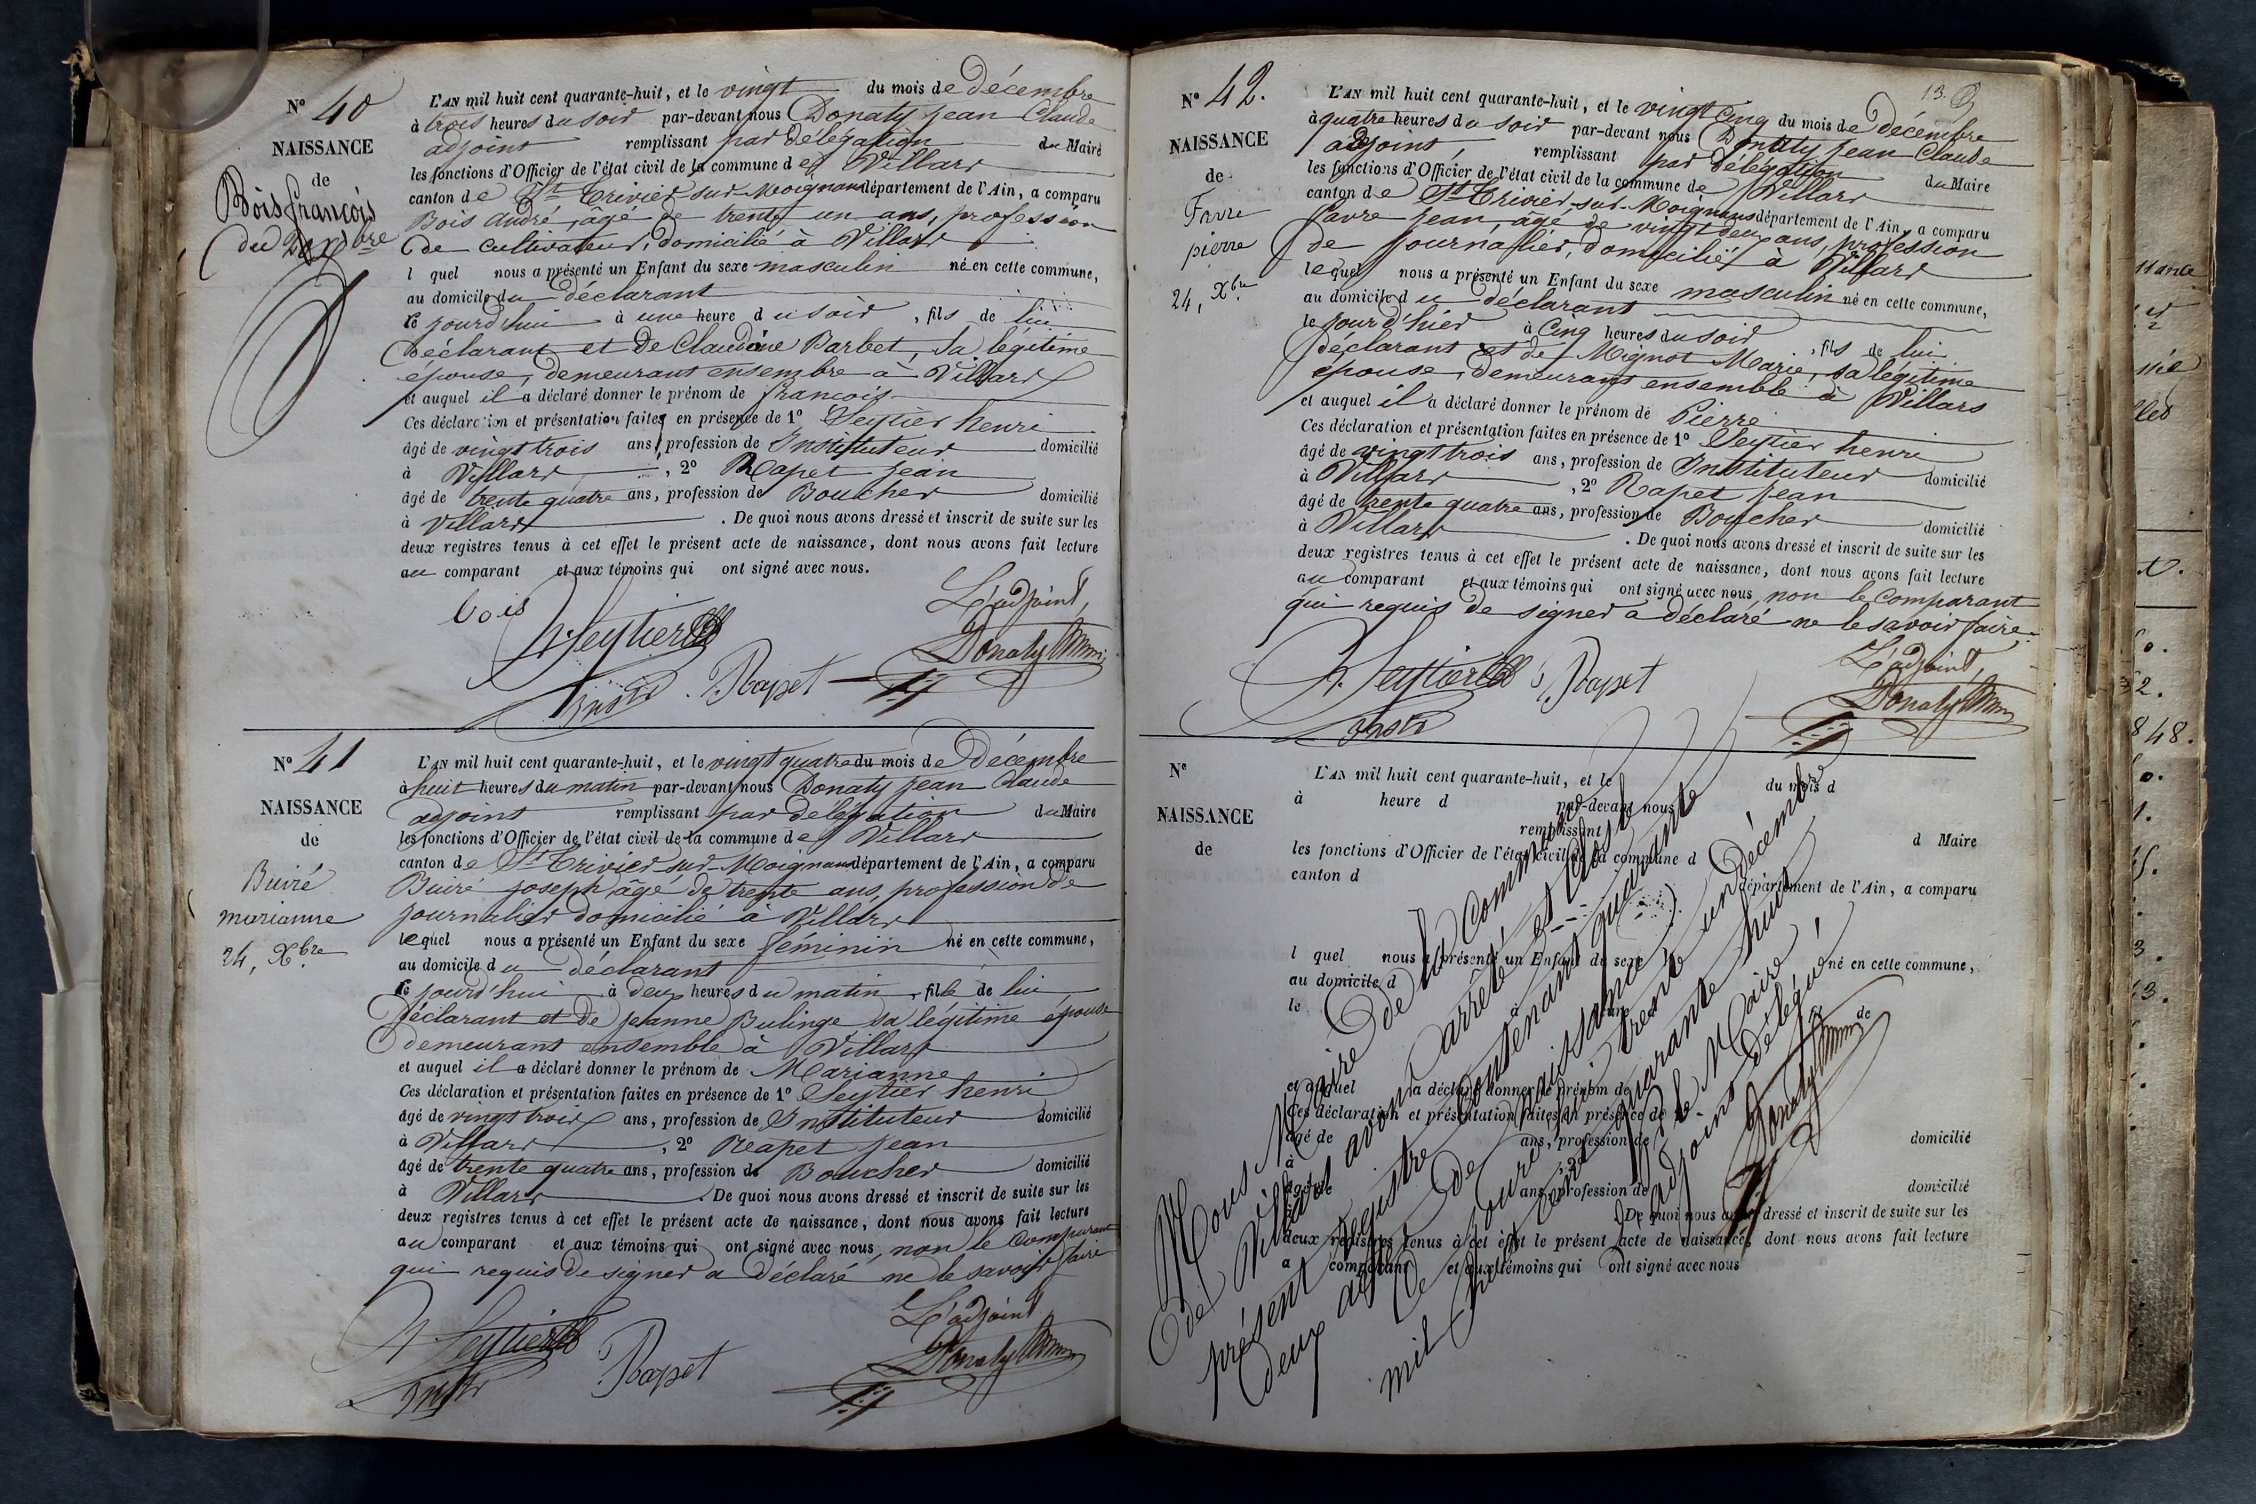 N° 40
NAISSANCE
de
Bois françois
du 20 Xbre
L'AN mil huit cent quarante-huit, et le vingt du mois de Décembre
à trois heures du soir par-devant nous Donaty jean Claude
adjoint remplissant par délégation du Maire
les fonctions d'Officier de l'état civil de la commune de Villars
canton de St Trivier-sur-Moignans département de l'Ain, a comparu
Bois André, âgé de trente un ans, profession
de cultivateur, domicilié à Villars
l quel nous a présenté un Enfant du sexe masculin né en cette commune,
au domicile du déclarant
le jourd'hui à une heure du soir, fils de lui
Déclarant et de Claudine Barbet, sa légitime
épouse, demeurant ensemble à Villars
et auquel il a déclaré donner le prénom de françois
Ces déclaration et présentation faites en présence de 1° Seytier henri
âgé de vingt trois ans, profession de Instituteur domicilié
à Villars, 2° Rapet jean
âgé de trente quatre ans, profession de Boucher domicilié
à Villars. De quoi nous avons dressé et inscrit de suite sur les
deux registres tenus à cet effet le présent acte de naissance, dont nous avons fait lecture
au comparant et aux témoins qui ont signé avec nous.
bois L'adjoint,
h. Seytier Donaty
Instr J. Rapet
N° 41
NAISSANCE
de
Buiré
marianne
24, Xbre
L'AN mil huit cent quarante-huit, et le vingt quatre du mois de Décembre
à huit heures du matin par-devant nous Donaty jean Claude
adjoint remplissant par délégation du Maire
les fonctions d'Officier de l'état civil de la commune de Villars
canton de St Trivier-sur-Moignans département de l'Ain, a comparu
Buiré joseph âgé de trente ans, profession de
journalier domicilié à Villars
lequel nous a présenté un Enfant du sexe féminin né en cette commune,
au domicile du déclarant
le jourd'hui à deux heures du matin, fille de lui
Déclarant et de jeanne Bulinge sa légitime épouse
demeurant ensemble à Villars
et auquel il a déclaré donner le prénom de Marianne
Ces déclaration et présentation faites en présence de 1° Seytier henri
âgé de vingt trois ans, profession de Instituteur domicilié
à Villars, 2° Rapet jean
âgé de trente quatre ans, profession de Boucher domicilié
à Villars. De quoi nous avons dressé et inscrit de suite sur les
deux registres tenus à cet effet le présent acte de naissance, dont nous avons fait lecture
au comparant et aux témoins qui ont signé avec nous, non le comparant
qui requis de signer a déclaré ne le savoir faire
L'adjoint
h. Seytier Donaty
Instr Rapet
13.
N° 42.
NAISSANCE
de
Favre
pierre
24, Xbre
L'AN mil huit cent quarante-huit, et le vingt cinq du mois de Décembre
à quatre heures du soir par-devant nous Donaty jean Claude
adjoint, remplissant par délégation du Maire
les fonctions d'Officier de l'état civil de la commune de Villars
canton de St Trivier-sur-Moignans département de l'Ain, a comparu
favre jean, âgé de vingt deux ans, profession
de journalier, domicilié à Villars
lequel nous a présenté un Enfant du sexe masculin né en cette commune,
au domicile du déclarant
le jour d'hier à Cinq heures du soir, fils de lui
Déclarant et de Mignot Marie, sa légitime
épouse, demeurant ensemble à Villars
et auquel il a déclaré donner le prénom de Pierre
Ces déclaration et présentation faites en présence de 1° Seytier henri
âgé de vingt trois ans, profession de Instituteur domicilié
à Villars, 2° Rapet jean
âgé de trente quatre ans, profession de Boucher domicilié
à Villars. De quoi nous avons dressé et inscrit de suite sur les
deux registres tenus à cet effet le présent acte de naissance, dont nous avons fait lecture
au comparant et aux témoins qui ont signé avec nous, non le comparant
qui requis de signer a déclaré ne le savoir faire.
L'adjoint,
h. Seytier J. Rapet Donaty
Instr
N°
NAISSANCE
de
L'AN mil huit cent quarante-huit, et le du mois d
à heure d par-devant nous
remplissant d Maire
les fonctions d'Officier de l'état civil de la commune d
canton d département de l'Ain, a comparu
l quel nous a présenté un Enfant du sexe né en cette commune,
au domicile d
le à heure de
et auquel a déclaré donner le prénom de
Ces déclaration et présentation faites en présence de
âgé de ans, profession de domicilié
à , 2°
âgé de ans, profession de domicilié
à De quoi nous avons dressé et inscrit de suite sur les
deux registres tenus à cet effet le présent acte de naissance, dont nous avons fait lecture
a comparant et aux témoins qui ont signé avec nous
Nous Maire de la commune
de Villars avons arrêté et clos le
présent registre contenant quarante
deux actes de naissance
Ce jourd'hui trente un décembre
mil huit cent quarante huit
P. le Maire
L'adjoint délégué,
Donaty